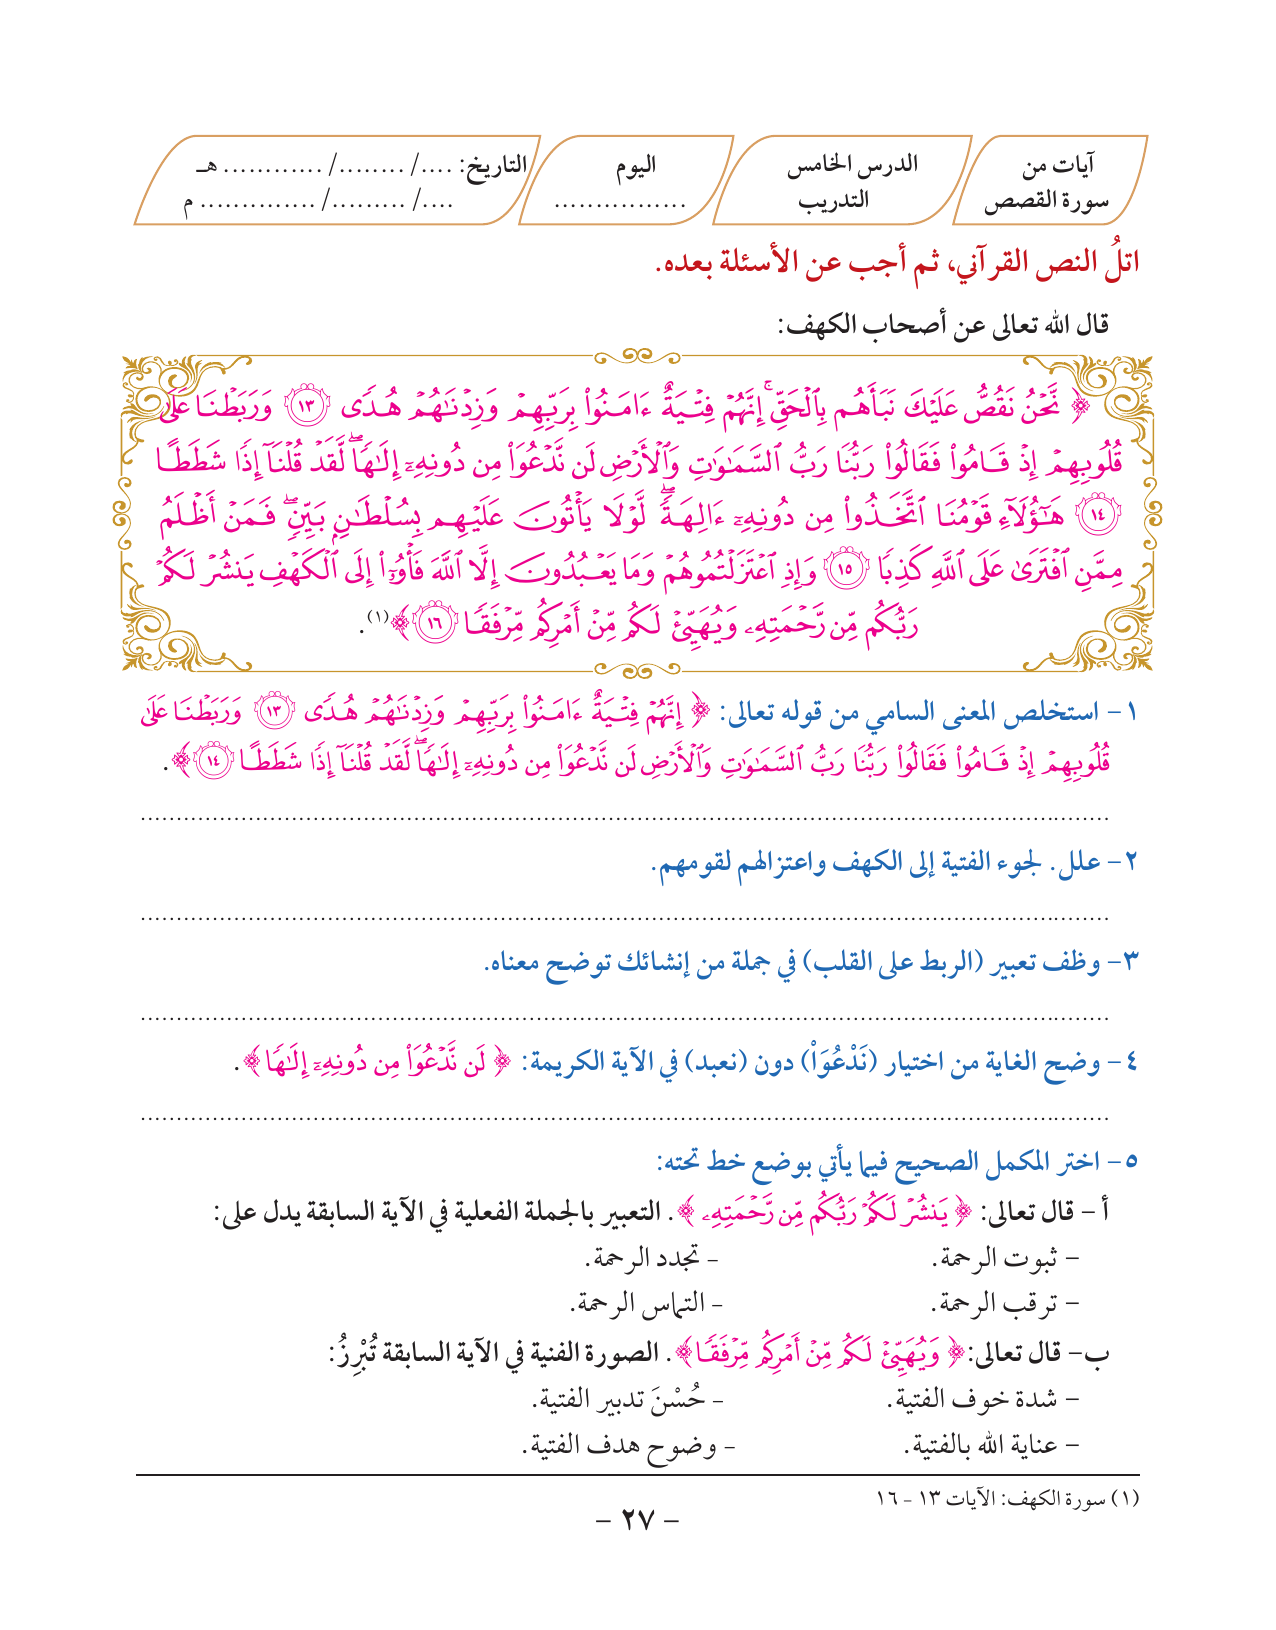 آيات من
سورة القصص
الدرس الخامس
التدريب
اليوم
................
التاريخ: ..../ ......../ ............ هـ
..../ ........./ .............. م
اتلُ النص القرآني، ثم أجب عن الأسئلة بعده.
قال الله تعالى عن أصحاب الكهف:
﴿ نَّحْنُ نَقُصُّ عَلَيْكَ نَبَأَهُم بِٱلْحَقِّ ۚ إِنَّهُمْ فِتْيَةٌ ءَامَنُوا۟ بِرَبِّهِمْ وَزِدْنَـٰهُمْ هُدًى ١٣ وَرَبَطْنَا عَلَىٰ
قُلُوبِهِمْ إِذْ قَامُوا۟ فَقَالُوا۟ رَبُّنَا رَبُّ ٱلسَّمَـٰوَٰتِ وَٱلْأَرْضِ لَن نَّدْعُوَا۟ مِن دُونِهِۦٓ إِلَـٰهًا ۖ لَّقَدْ قُلْنَآ إِذًا شَطَطًا
١٤ هَـٰٓؤُلَآءِ قَوْمُنَا ٱتَّخَذُوا۟ مِن دُونِهِۦٓ ءَالِهَةً ۖ لَّوْلَا يَأْتُونَ عَلَيْهِم بِسُلْطَـٰنٍۭ بَيِّنٍ ۖ فَمَنْ أَظْلَمُ
مِمَّنِ ٱفْتَرَىٰ عَلَى ٱللَّهِ كَذِبًا ١٥ وَإِذِ ٱعْتَزَلْتُمُوهُمْ وَمَا يَعْبُدُونَ إِلَّا ٱللَّهَ فَأْوُۥٓا۟ إِلَى ٱلْكَهْفِ يَنشُرْ لَكُمْ
رَبُّكُم مِّن رَّحْمَتِهِۦ وَيُهَيِّئْ لَكُم مِّنْ أَمْرِكُم مِّرْفَقًا ١٦ ﴾(١).
١- استخلص المعنى السامي من قوله تعالى: ﴿ إِنَّهُمْ فِتْيَةٌ ءَامَنُوا۟ بِرَبِّهِمْ وَزِدْنَـٰهُمْ هُدًى ١٣ وَرَبَطْنَا عَلَىٰ
قُلُوبِهِمْ إِذْ قَامُوا۟ فَقَالُوا۟ رَبُّنَا رَبُّ ٱلسَّمَـٰوَٰتِ وَٱلْأَرْضِ لَن نَّدْعُوَا۟ مِن دُونِهِۦٓ إِلَـٰهًا ۖ لَّقَدْ قُلْنَآ إِذًا شَطَطًا ١٤ ﴾.
................................................................
٢- علل. لجوء الفتية إلى الكهف واعتزالهم لقومهم.
................................................................
٣- وظف تعبير (الربط على القلب) في جملة من إنشائك توضح معناه.
................................................................
٤- وضح الغاية من اختيار (نَدْعُوَاْ) دون (نعبد) في الآية الكريمة: ﴿ لَن نَّدْعُوَا۟ مِن دُونِهِۦٓ إِلَـٰهًا ﴾.
................................................................
٥- اختر المكمل الصحيح فيما يأتي بوضع خط تحته:
أ - قال تعالى: ﴿ يَنشُرْ لَكُمْ رَبُّكُم مِّن رَّحْمَتِهِۦ ﴾. التعبير بالجملة الفعلية في الآية السابقة يدل على:
- ثبوت الرحمة. - تجدد الرحمة.
- ترقب الرحمة. - التماس الرحمة.
ب- قال تعالى:﴿ وَيُهَيِّئْ لَكُم مِّنْ أَمْرِكُم مِّرْفَقًا ﴾. الصورة الفنية في الآية السابقة تُبْرِزُ:
- شدة خوف الفتية. - حُسْنَ تدبير الفتية.
- عناية الله بالفتية. - وضوح هدف الفتية.
(١) سورة الكهف: الآيات ١٣ - ١٦
- ٢٧ -